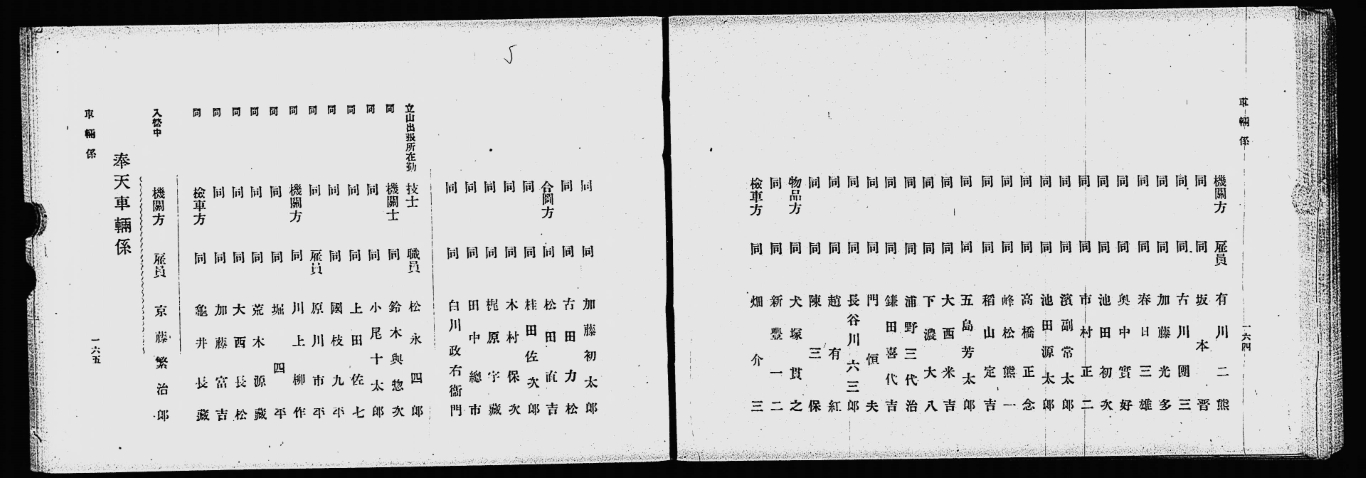 車輛係
一六四
機關方 雇員 有川二熊
同 同 坂本晋
同 同 古川團三
同 同 加藤光多
同 同 春日三雄
同 同 奥中實好
同 同 池田初次
同 同 市村正二
同 同 濱副常太郎
同 同 池田源太郎
同 同 高橋正念
同 同 峰松熊一
同 同 稻山定吉
同 同 五島芳太郎
同 同 大西米吉
同 同 下濃大八
同 同 浦野三代治
同 同 鎌田喜代吉
同 同 門恒夫
同 同 長谷川六三郎
同 同 趙有紅
同 同 陳三保
物品方 同 犬塚貫之
同 同 新豐一二
檢車方 同 畑介三
同 同 加藤初太郎
同 同 古田力松
合圖方 同 松田直吉
同 同 桂田佐次郎
同 同 木村保次
同 同 梶原宇藏
同 同 田中總市
同 同 白川政右衞門
立山出張所在勤 技士 職員 松永四郎
同 機關士 同 鈴木與惣次
同 同 同 小尾十太郎
同 同 同 上田佐七
同 同 同 國枝九平
同 同 雇員 原川市平
同 機關方 同 川上柳作
同 同 同 堀四平
同 同 同 荒木源藏
同 同 同 大西長松
同 同 同 加藤富吉
同 檢車方 同 龜井長藏
入營中 機關方 雇員 京藤繁治郎
奉天車輛係
車輛係
一六五
5